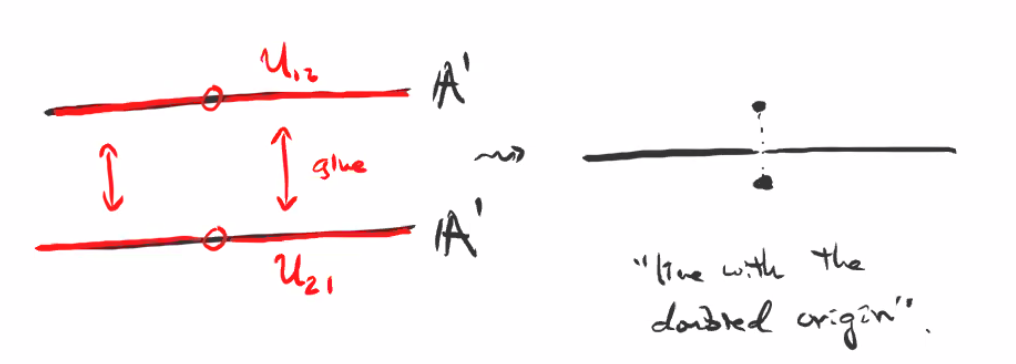 U₁₂
𝔸¹
glue
𝔸¹
U₂₁
"line with the
doubled origin".